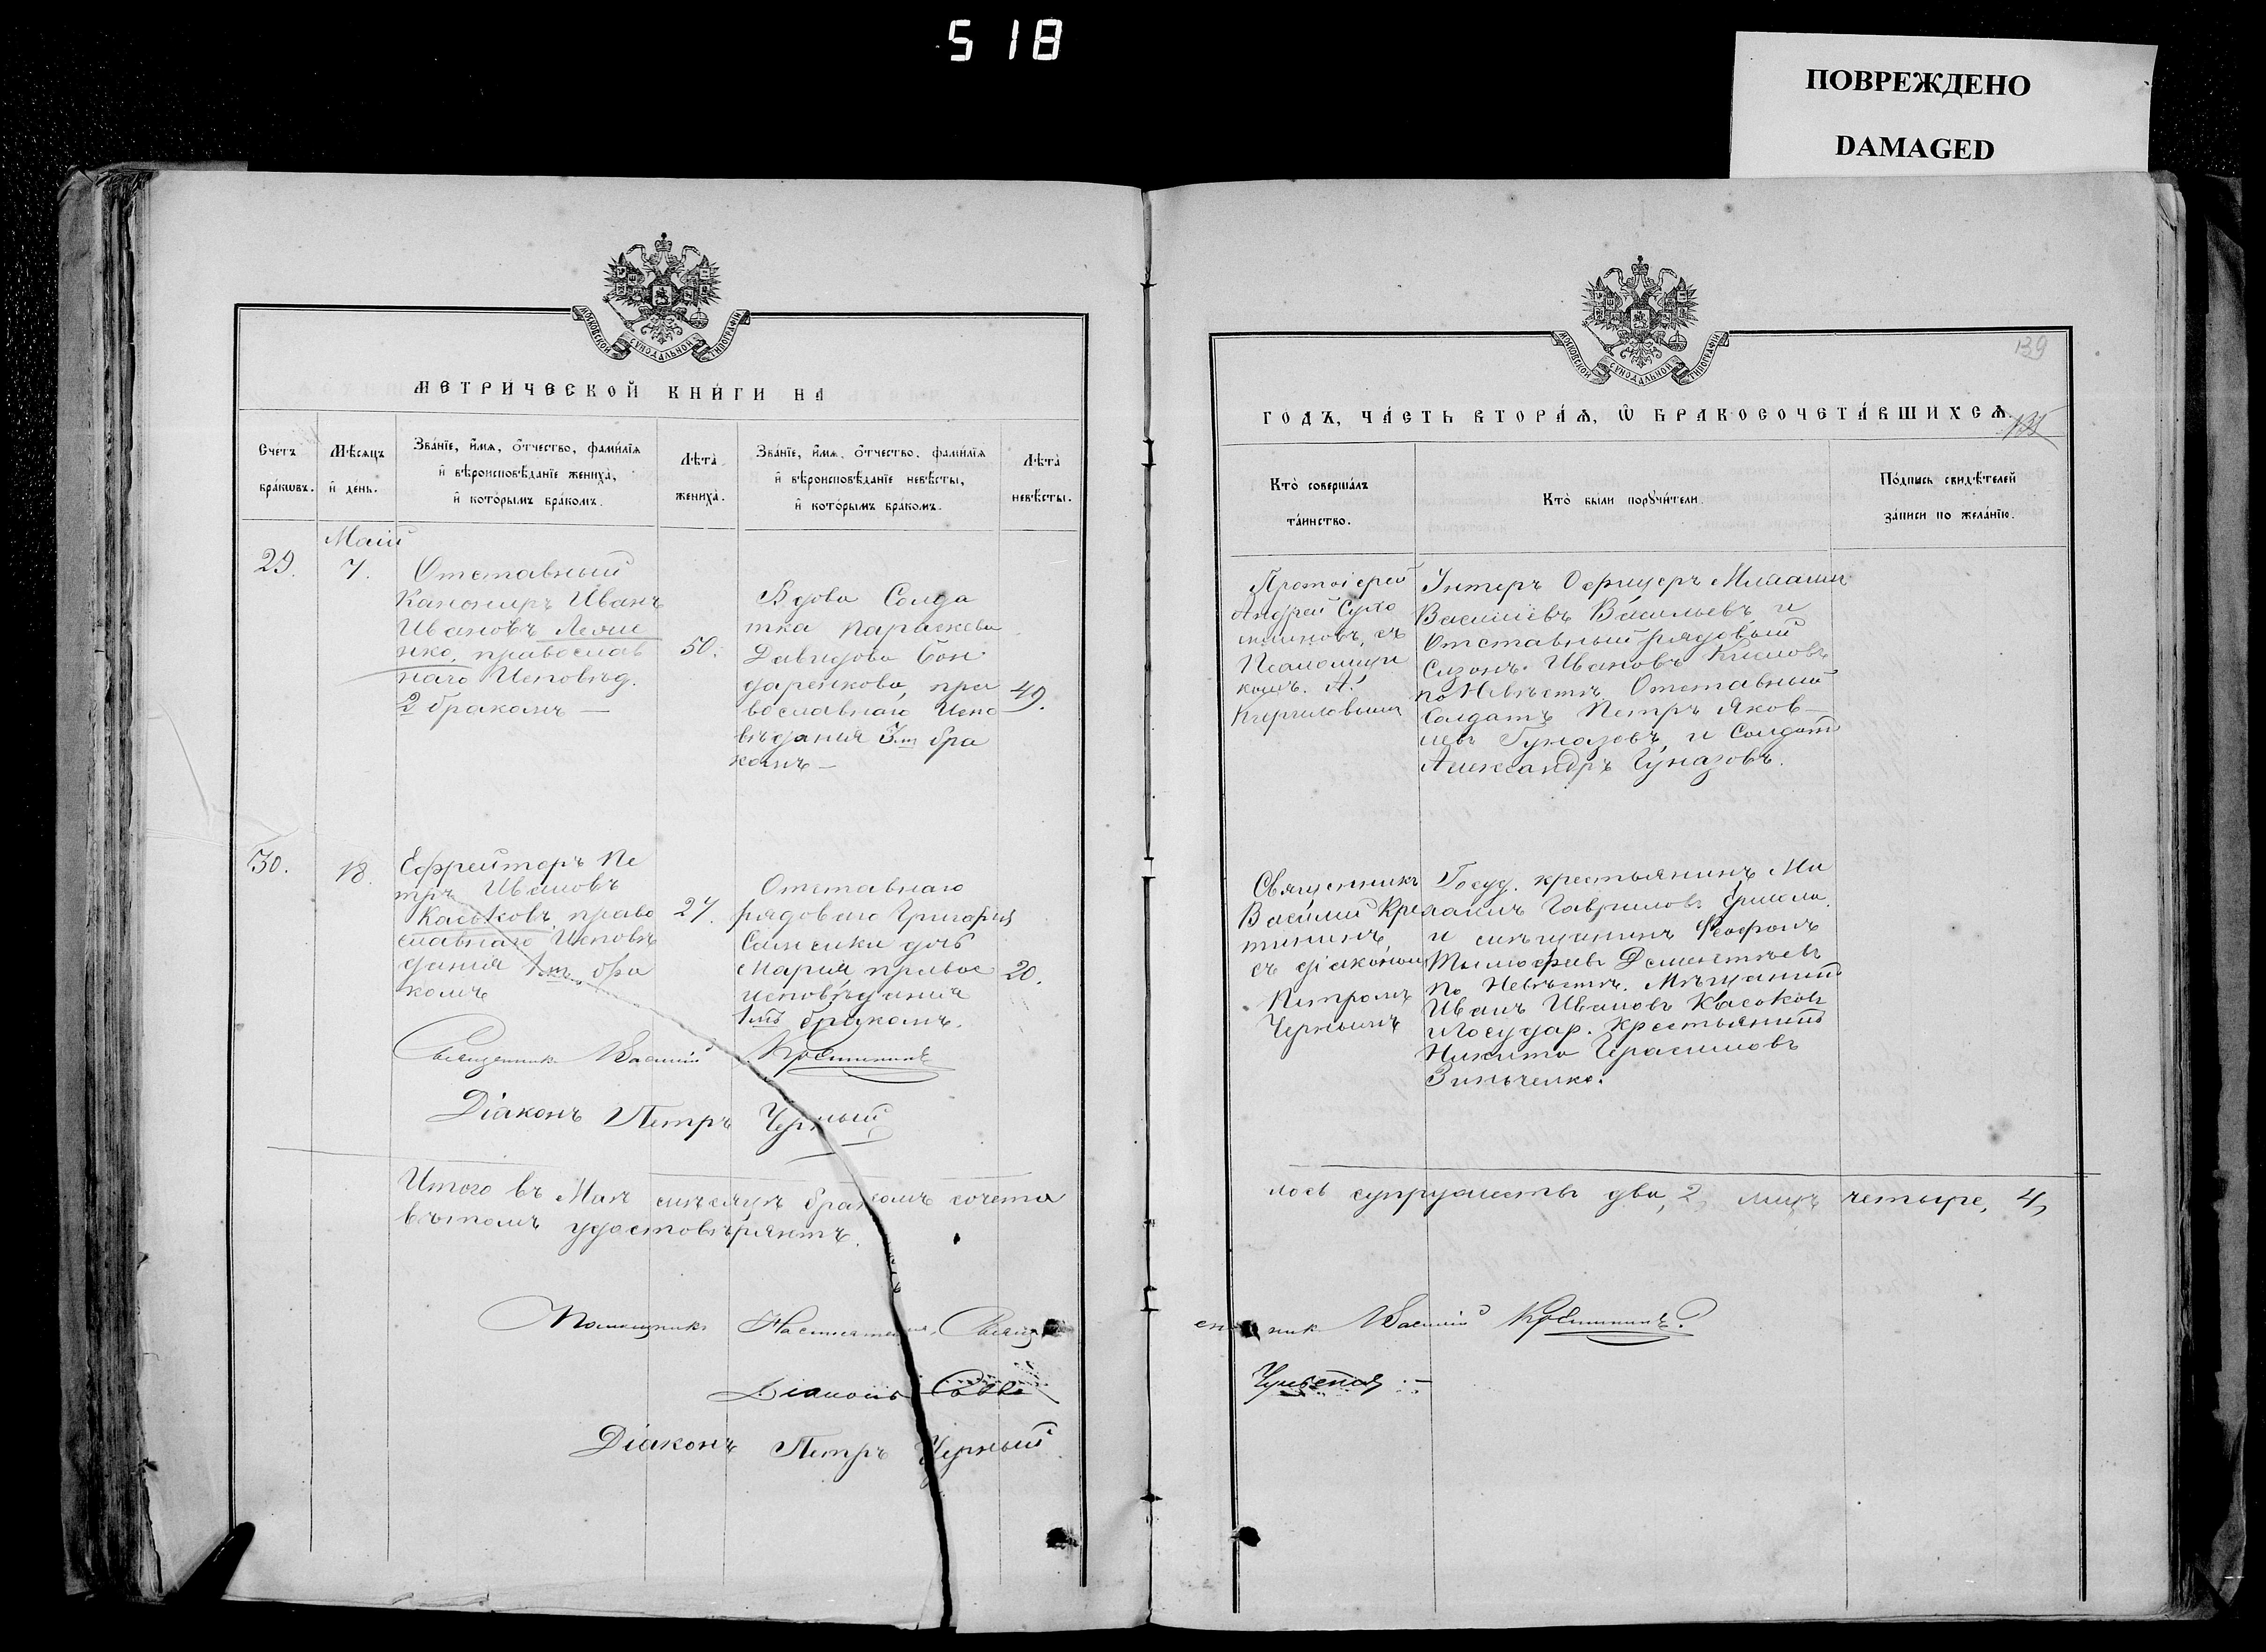 518
ПОВРЕЖДЕНО
DAMAGED
МОСКОВСКОЙ СѴНОДАЛЬНОЙ ТИПОГРАФІИ
МЕТРИ́ЧЕСКОЙ КНИ́ГИ НА
Сче́тъ бра́кωвъ.
Мѣ́сяцъ и҆ день.
Зва́нїе, и҆́мѧ, о҆́тчество, фами́лїѧ
и҆ вѣроисповѣ́данїе жениха̀,
и҆ кото́рымъ бра́комъ.
Лѣ́та жениха̀.
Зва́нїе, и҆́мѧ, о҆́тчество, фами́лїѧ
и҆ вѣроисповѣ́данїе невѣ́сты,
и҆ кото́рымъ бра́комъ.
Лѣ́та невѣ́сты.
29.
Маій
7.
Отставный
Канониръ Иванъ
Ивановъ Леше
нко, православ
наго Исповѣд.
2 бракомъ —
50.
Вдова Солда
тка Параскева
Давидова Бон
даренкова, пра
вославнаго Испо
вѣданія 3-мъ бра
комъ —
49.
30.
18.
Ефрейторъ Пе
тръ Ивановъ
Каськовъ, право
славнаго Исповѣ
данія 1-мъ бра
комъ
27.
Отставнаго
рядоваго Григорія
дочь
Марія правос
исповѣданія
1-мъ бракомъ.
20.
Священникъ Василій Кретининъ
Діаконъ Петръ Черный
Итого въ Маѣ мѣсяцѣ бракомъ сочета
въ томъ удостовѣряютъ.
Помощникъ Настоятеля, Свящ
Діаконъ Савва
Діаконъ Петръ Черный
МОСКОВСКОЙ СѴНОДАЛЬНОЙ ТИПОГРАФІИ
139
ГОДЪ, ЧА́СТЬ ВТОРА́Ѧ, Ѡ҆ БРАКОСОЧЕТА́ВШИХСѦ.
135
Кто̀ соверша́лъ
та́инство.
Кто̀ бы́ли порꙋчи́тели.
По́дпись свидѣ́телей
за́писи по жела́нїю.
Протоіерей
Андрей Сухо
съ
Псаломщи
комъ. А.
Кириловымъ
Унтеръ Офицеръ Михаилъ
Василіевъ Васильевъ, и
Отставный рядовый
Сизонъ Ивановъ Климовъ
по Невѣстѣ, Отставный
Солдатъ Петръ Яков—
левъ Гуназовъ, и Солдатъ
Александръ Гуназовъ.
Священникъ
Василій Кре
тининъ,
съ діакономъ
Петромъ
Чернымъ
Госуд. крестьянинъ Ми
хаилъ Гавриловъ
и мѣщанинъ Феофанъ
Тимофеевъ Дементьевъ
по Невѣстѣ. Мѣщанинъ
Иванъ Ивановъ Каськовъ
и Государ. Крестьянинъ
Никита Герасимовъ
Зинченко.
лось супружествъ два, 2, лицъ четыре, 4,
никъ Василій Кретининъ.